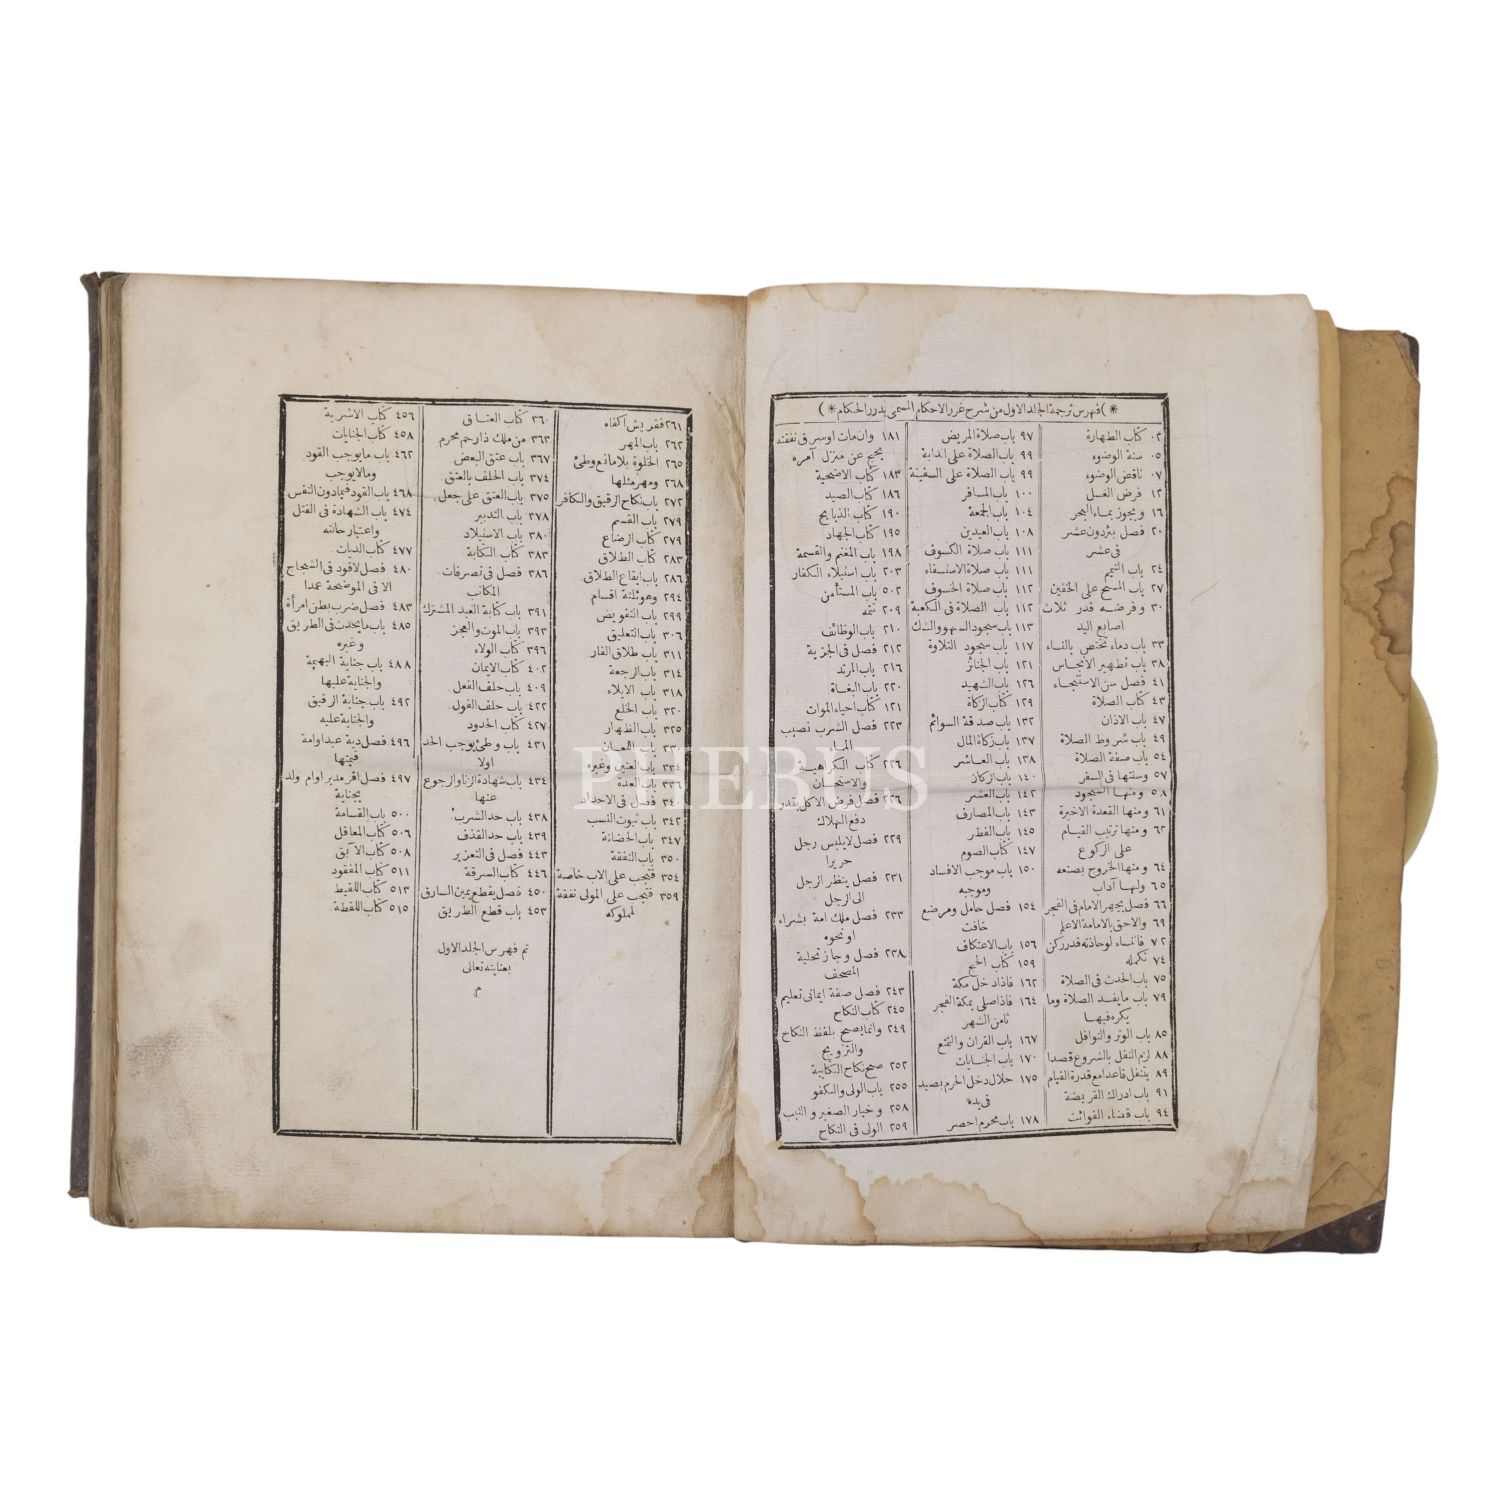 *) فهرس ترجمة الجلد الاول من شرح غرر الاحكام المسمى بدرر الحكام (*
٠٢ كتاب الطهارة
٠٥ سنة الوضوء
٠٧ ناقض الوضوء
١٢ فرض الغسل
١٦ ويجوز بماء البحر
٢٠ فصل بئر دون عشر
فى عشر
٢٤ باب التيمم
٢٧ باب المسح على الخفين
٣٠ وفرضه قدر ثلاث
اصابع اليد
٣٣ باب دماء تختص بالنساء
٣٨ باب تطهير الانجاس
٤١ فصل سن الاستنجاء
٤٣ كتاب الصلاة
٤٧ باب الاذان
٤٩ باب شروط الصلاة
٥٤ باب صفة الصلاة
٥٧ وسنتها فى السفر
٥٨ ومنها السجود
٦١ ومنها القعدة الاخيرة
٦٢ ومنها ترتيب القيام
على الركوع
٦٤ ومنها الخروج بصنعه
٦٥ ولها آداب
٦٦ فصل يجهر الامام فى الفجر
٦٩ والاحق بالامامة الاعلم
٧٢ فالنساء لو حاذته قدر ركن
٧٤ تكمله
٧٥ باب الحدث فى الصلاة
٧٩ باب ما يفسد الصلاة وما
يكره فيها
٨٥ باب الوتر والنوافل
٨٨ لزم النفل بالشروع قصدا
٨٩ يتنفل قاعدا مع قدرة القيام
٩١ باب ادراك الفريضة
٩٤ باب قضاء الفوائت
٩٧ باب صلاة المريض
٩٩ باب الصلاة على الدابة
٩٩ باب الصلاة على السفينة
١٠٠ باب المسافر
١٠٤ باب الجمعة
١٠٨ باب العيدين
١١١ باب صلاة الكسوف
١١١ باب صلاة الاستسقاء
١١٢ باب صلاة الخسوف
١١٢ باب الصلاة فى الكعبة
١١٣ باب سجود السهو والشك
١١٧ باب سجود التلاوة
١٢١ باب الجنائز
١٢٦ باب الشهيد
١٢٩ كتاب الزكاة
١٣٢ باب صدقة السوائم
١٣٧ باب زكاة المال
١٣٨ باب العاشر
١٤٠ باب الركان
١٤٢ باب العشر
١٤٣ باب المصارف
١٤٥ باب الفطر
١٤٧ كتاب الصوم
١٥٠ باب موجب الافساد
وموجبه
١٥٤ فصل حامل ومرضع
خافت
١٥٦ باب الاعتكاف
١٥٩ كتاب الحج
١٦٢ فاذا دخل مكة
١٦٤ فاذا صلى بمكة الفجر
ثامن الشهر
١٦٧ باب القران والتمتع
١٧٠ باب الجنايات
١٧٥ حلال دخل الحرم بصيد
فى يده
١٧٨ باب محرم احصر
١٨١ وان مات او سرق نفقته
يحج عن منزل آمره
١٨٣ كتاب الاضحية
١٨٦ كتاب الصيد
١٩٠ كتاب الذبايح
١٩٥ كتاب الجهاد
١٩٨ باب المغنم والقسمة
٢٠٣ باب استيلاء الكفار
٥٠٢ باب المستأمن
٢٠٩ تتمه
٢١٠ باب الوظائف
٢١٢ فصل فى الجزية
٢١٦ باب المرتد
٢٢٠ باب البغاة
١٢١ كتاب احياء الموات
٢٢٣ فصل الشرب نصيب
الماء
٢٢٦ كتاب الكراهية
والاستحسان
٢٢٦ فصل فرض الاكل بقدر
دفع الهلاك
٢٢٩ فصل لا يلبس رجل
حريرا
٢٣١ فصل ينظر الرجل
الى الرجل
٢٣٣ فصل ملك امة بشراء
او نحوه
٢٣٨ فصل وجاز تحلية
المصحف
٢٤٣ فصل صفة ايمانى تعليم
٢٤٥ كتاب النكاح
٢٤٩ وانما يصح بلفظ النكاح
والتزويج
٢٥٢ صح نكاح الكتابية
٢٥٥ باب الولى والكفو
٢٥٨ وخيار الصغير والثيب
٢٥٩ الولى فى النكاح
٢٦١ فقريش اكفاء
٢٦٢ باب المهر
٢٦٥ الخلوة بلا مانع وطئ
٢٦٨ ومهر مثلها
٢٧٢ باب نكاح الرقيق والكافر
٢٧٩ باب القسم
٢٧٩ كتاب الرضاع
٢٨٣ كتاب الطلاق
٢٨٦ باب ايقاع الطلاق
٢٩٤ وهو ثلثة اقسام
٢٩٩ باب التفويض
٣٠٦ باب التعليق
٣١١ باب طلاق الفار
٣١٤ باب الرجعة
٣١٨ باب الايلاء
٣٢٠ باب الخلع
٣٢٥ باب الظهار
باب اللعان
٣٣٤ باب العنين وغيره
٣٣٦ باب العدة
٣٤٠ فصل فى الاحداد
٣٤٢ باب ثبوت النسب
٣٤٧ باب الحضانة
٣٥٠ باب النفقة
٣٥٤ فتجب على الاب خاصة
٣٥٩ فتجب على المولى نفقة
لمملوكه
٣٦٠ كتاب العتاق
٣٦٣ من ملك ذا رحم محرم
٣٦٧ باب عتق البعض
٣٧٤ باب الحلف بالعتق
٣٧٥ باب العتق على جعل
٣٧٨ باب التدبير
٣٨٠ باب الاستيلاد
٣٨٣ كتاب الكتابة
٣٨٦ فصل فى تصرفات
المكاتب
٣٩١ باب كتابة العبد المشترك
٣٩٣ باب الموت والعجز
٣٩٦ كتاب الولاء
٤٠٢ كتاب الايمان
٤٠٩ باب حلف الفعل
٤٢٢ باب حلف القول
٤٢٧ كتاب الحدود
٤٣١ باب وطئ يوجب الحد
اولا
٤٣٤ باب شهادة الزنا والرجوع
عنها
٤٣٨ باب حد الشرب
٤٣٩ باب حد القذف
٤٤٣ فصل فى التعزير
٤٤٦ كتاب السرقة
٤٥٠ فصل يقطع يمين السارق
٤٥٣ باب قطع الطريق
تم فهرس الجلد الاول
بعنايته تعالى
م
٤٥٦ كتاب الاشربة
٤٥٨ كتاب الجنايات
٤٦٢ باب ما يوجب القود
وما لا يوجب
٤٦٨ باب القود فيما دون النفس
٤٧٤ باب الشهادة فى القتل
واعتبار حالته
٤٧٧ كتاب الديات
٤٨٠ فصل لا قود فى الشجاج
الا فى الموضحة عمدا
٤٨٣ فصل ضرب بطن امرأة
٤٨٥ باب ما يحدث فى الطريق
وغيره
٤٨٨ باب جناية البهيمة
والجناية عليها
٤٩٢ باب جناية الرقيق
والجناية عليه
٤٩٦ فصل دية عبد او امة
قيمتها
٤٩٧ فصل اقر مدبر او ام ولد
بجناية
٥٠٠ باب القسامة
٥٠٦ كتاب المعاقل
٥٠٨ كتاب الآبق
٥١١ كتاب المفقود
٥١٣ كتاب اللقيط
٥١٥ كتاب اللقطة
PHEBUS